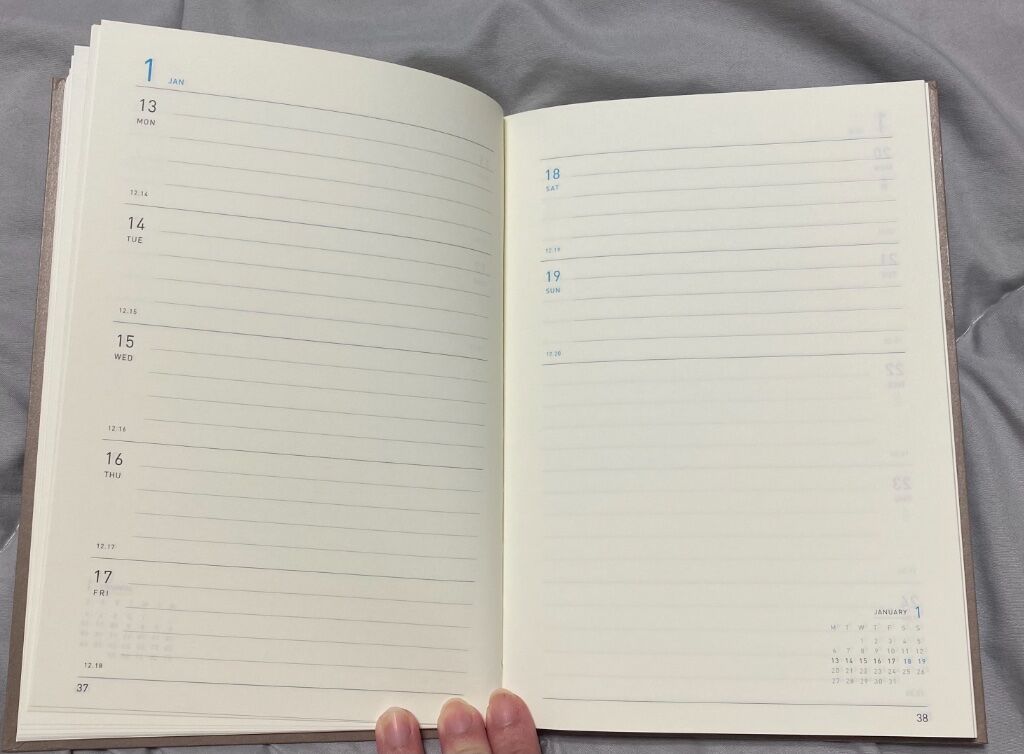 1 JAN
13
MON
12.14
14
TUE
12.15
15
WED
12.16
16
THU
12.17
17
FRI
12.18
37
18
SAT
12.19
19
SUN
12.20
JANUARY 1
M T W T F S S
1 2 3 4 5
6 7 8 9 10 11 12
13 14 15 16 17 18 19
20 21 22 23 24 25 26
27 28 29 30 31
38